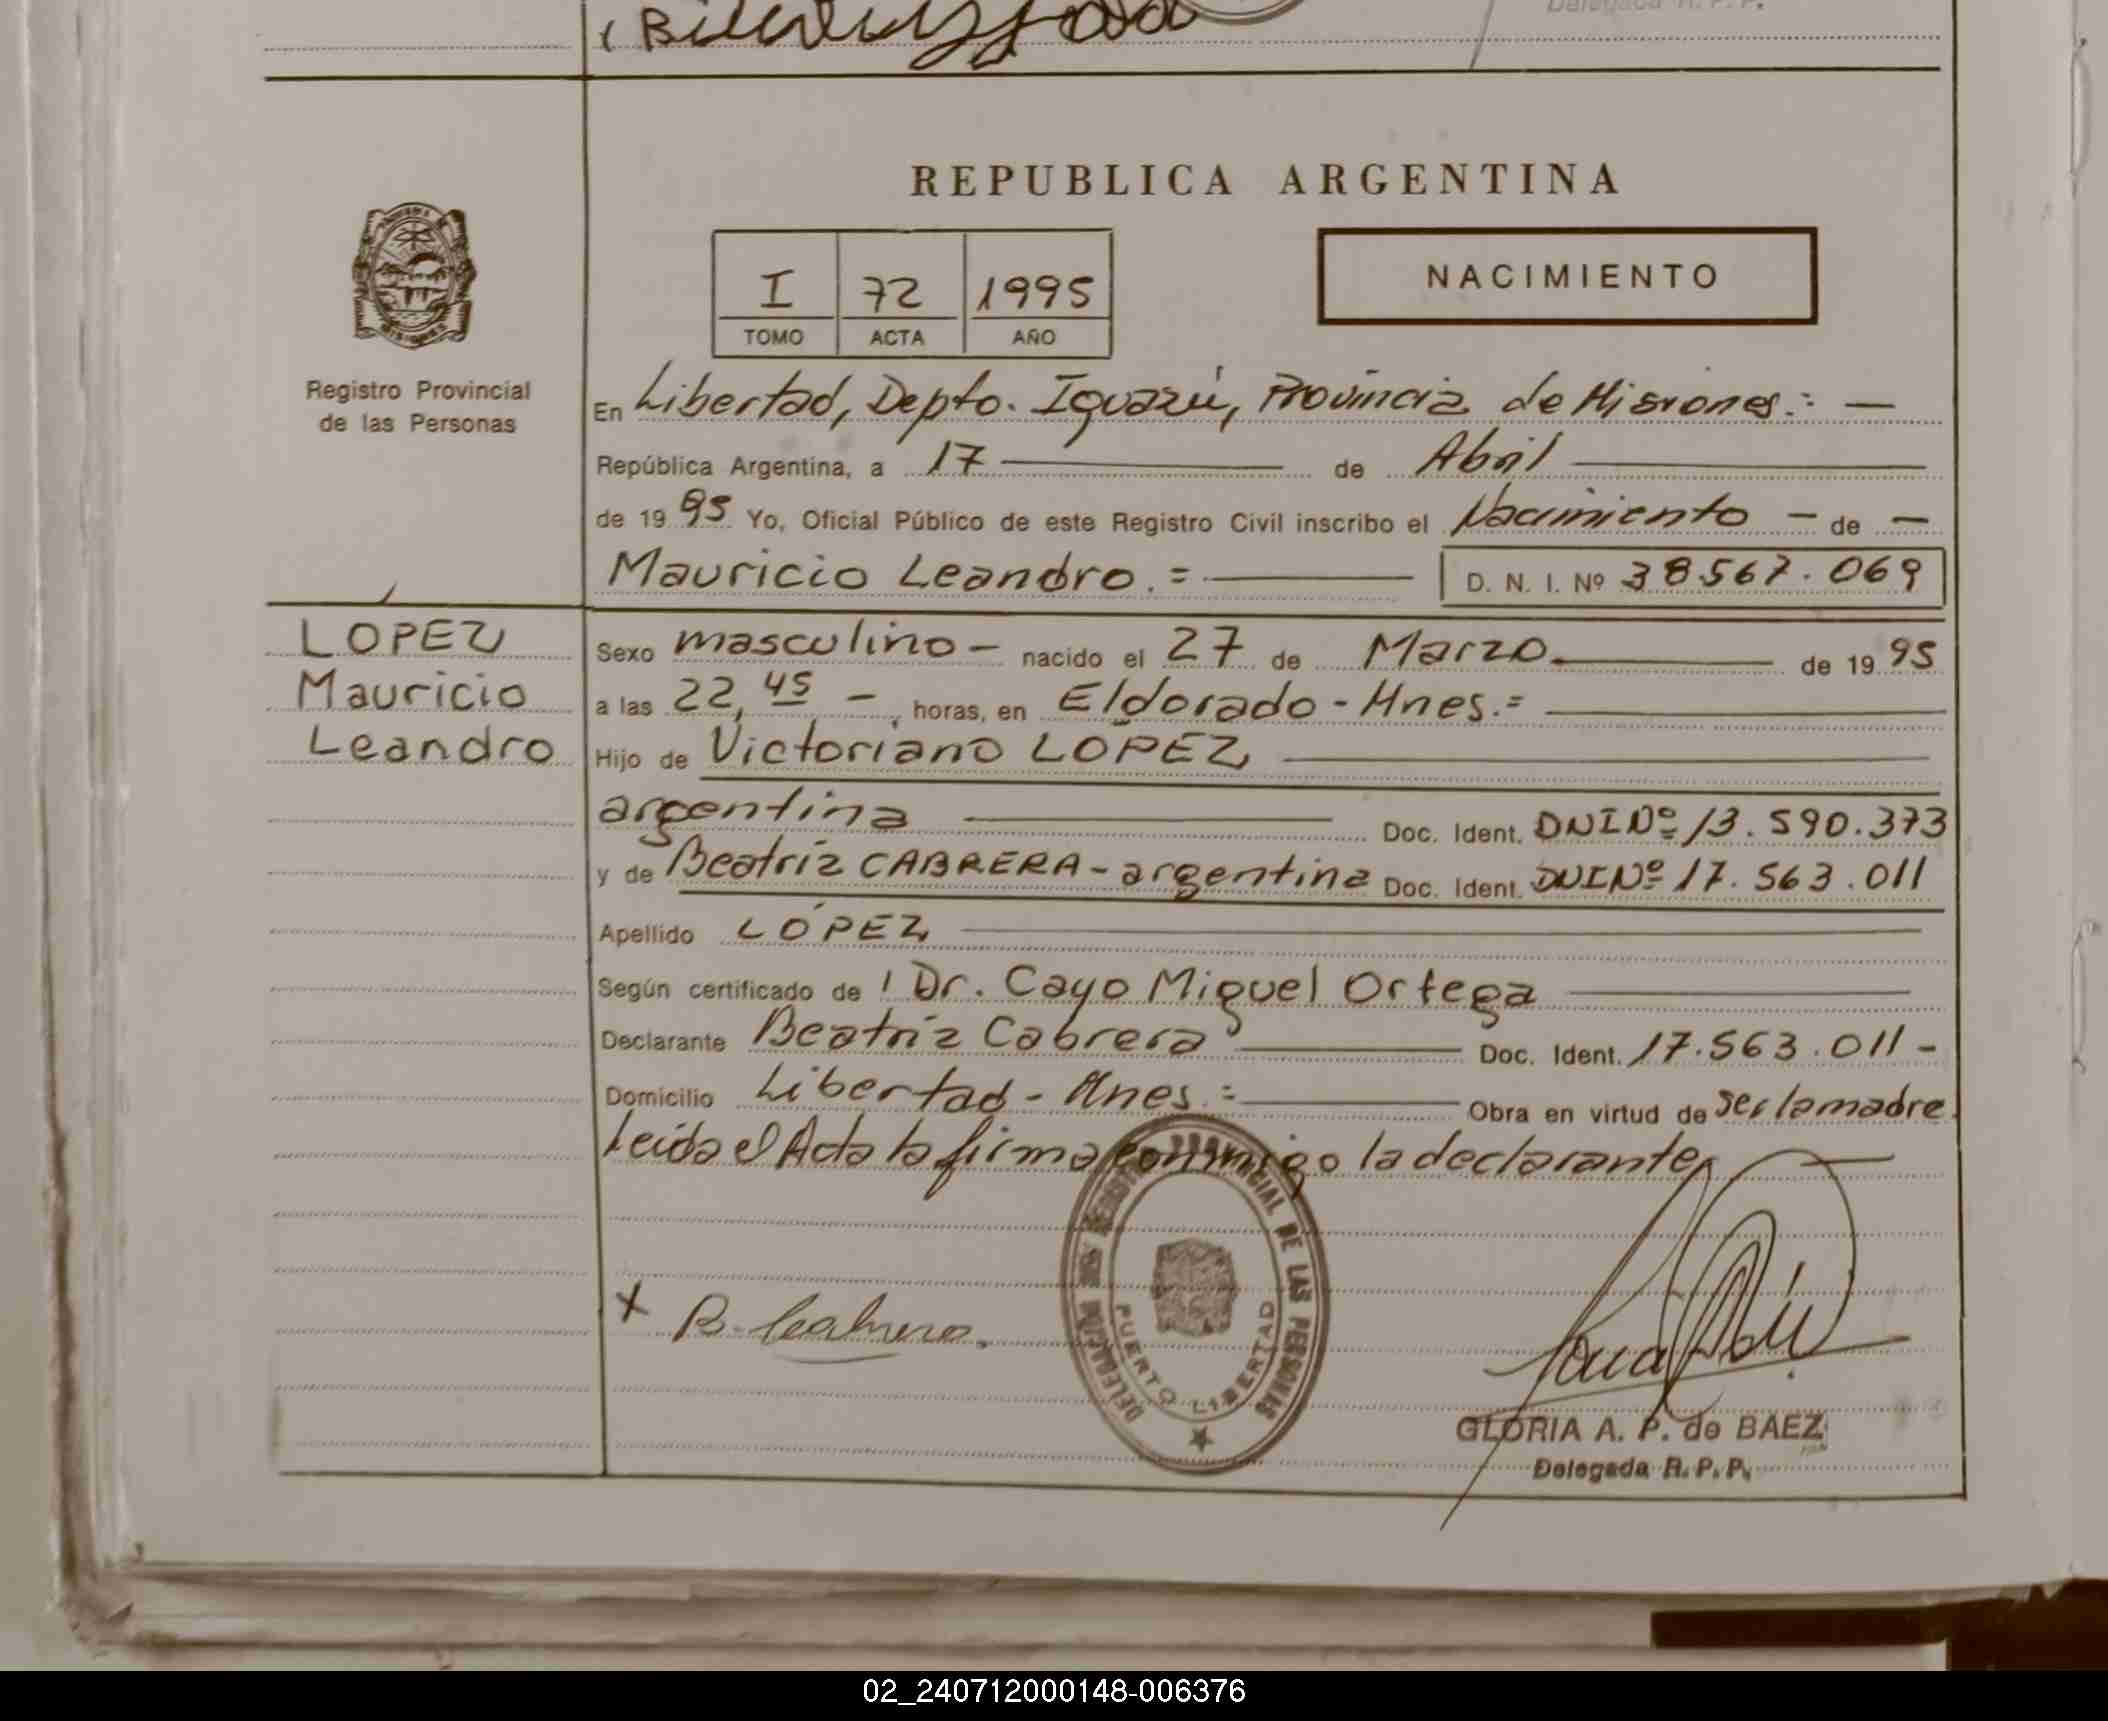 Delegada R. P. P.
REPUBLICA ARGENTINA
I 72 1995
TOMO ACTA AÑO
NACIMIENTO
MISIONES
Registro Provincial
de las Personas
En Libertad, Depto. Iguazú, Provincia de Misiones.: —
República Argentina, a 17 — de Abril —
de 19 95 Yo, Oficial Público de este Registro Civil inscribo el Nacimiento — de —
Mauricio Leandro. = — D. N. I. Nº 38567.069
LOPEZ
Mauricio
Leandro
Sexo masculino — nacido el 27 de Marzo. — de 19 95
a las 22,45 — , horas, en Eldorado - Mnes. = —
Hijo de Victoriano LÓPEZ —
argentina — Doc. Ident. DNI Nº 13.590.373
y de Beatriz CABRERA - argentina Doc. Ident. DNI Nº 17.563.011
Apellido LÓPEZ —
Según certificado de Dr. Cayo Miguel Ortega —
Declarante Beatriz Cabrera — Doc. Ident. 17.563.011 -
Domicilio Libertad - Mnes. = — Obra en virtud de ser la madre.
Leida el Acta la firma conmigo la declarante, —
DELEGACION REGISTRO PROVINCIAL DE LAS PERSONAS
PUERTO LIBERTAD
X B. Cabrera.
GLORIA A. P. de BAEZ
Delegada R. P. P.
02_240712000148-006376